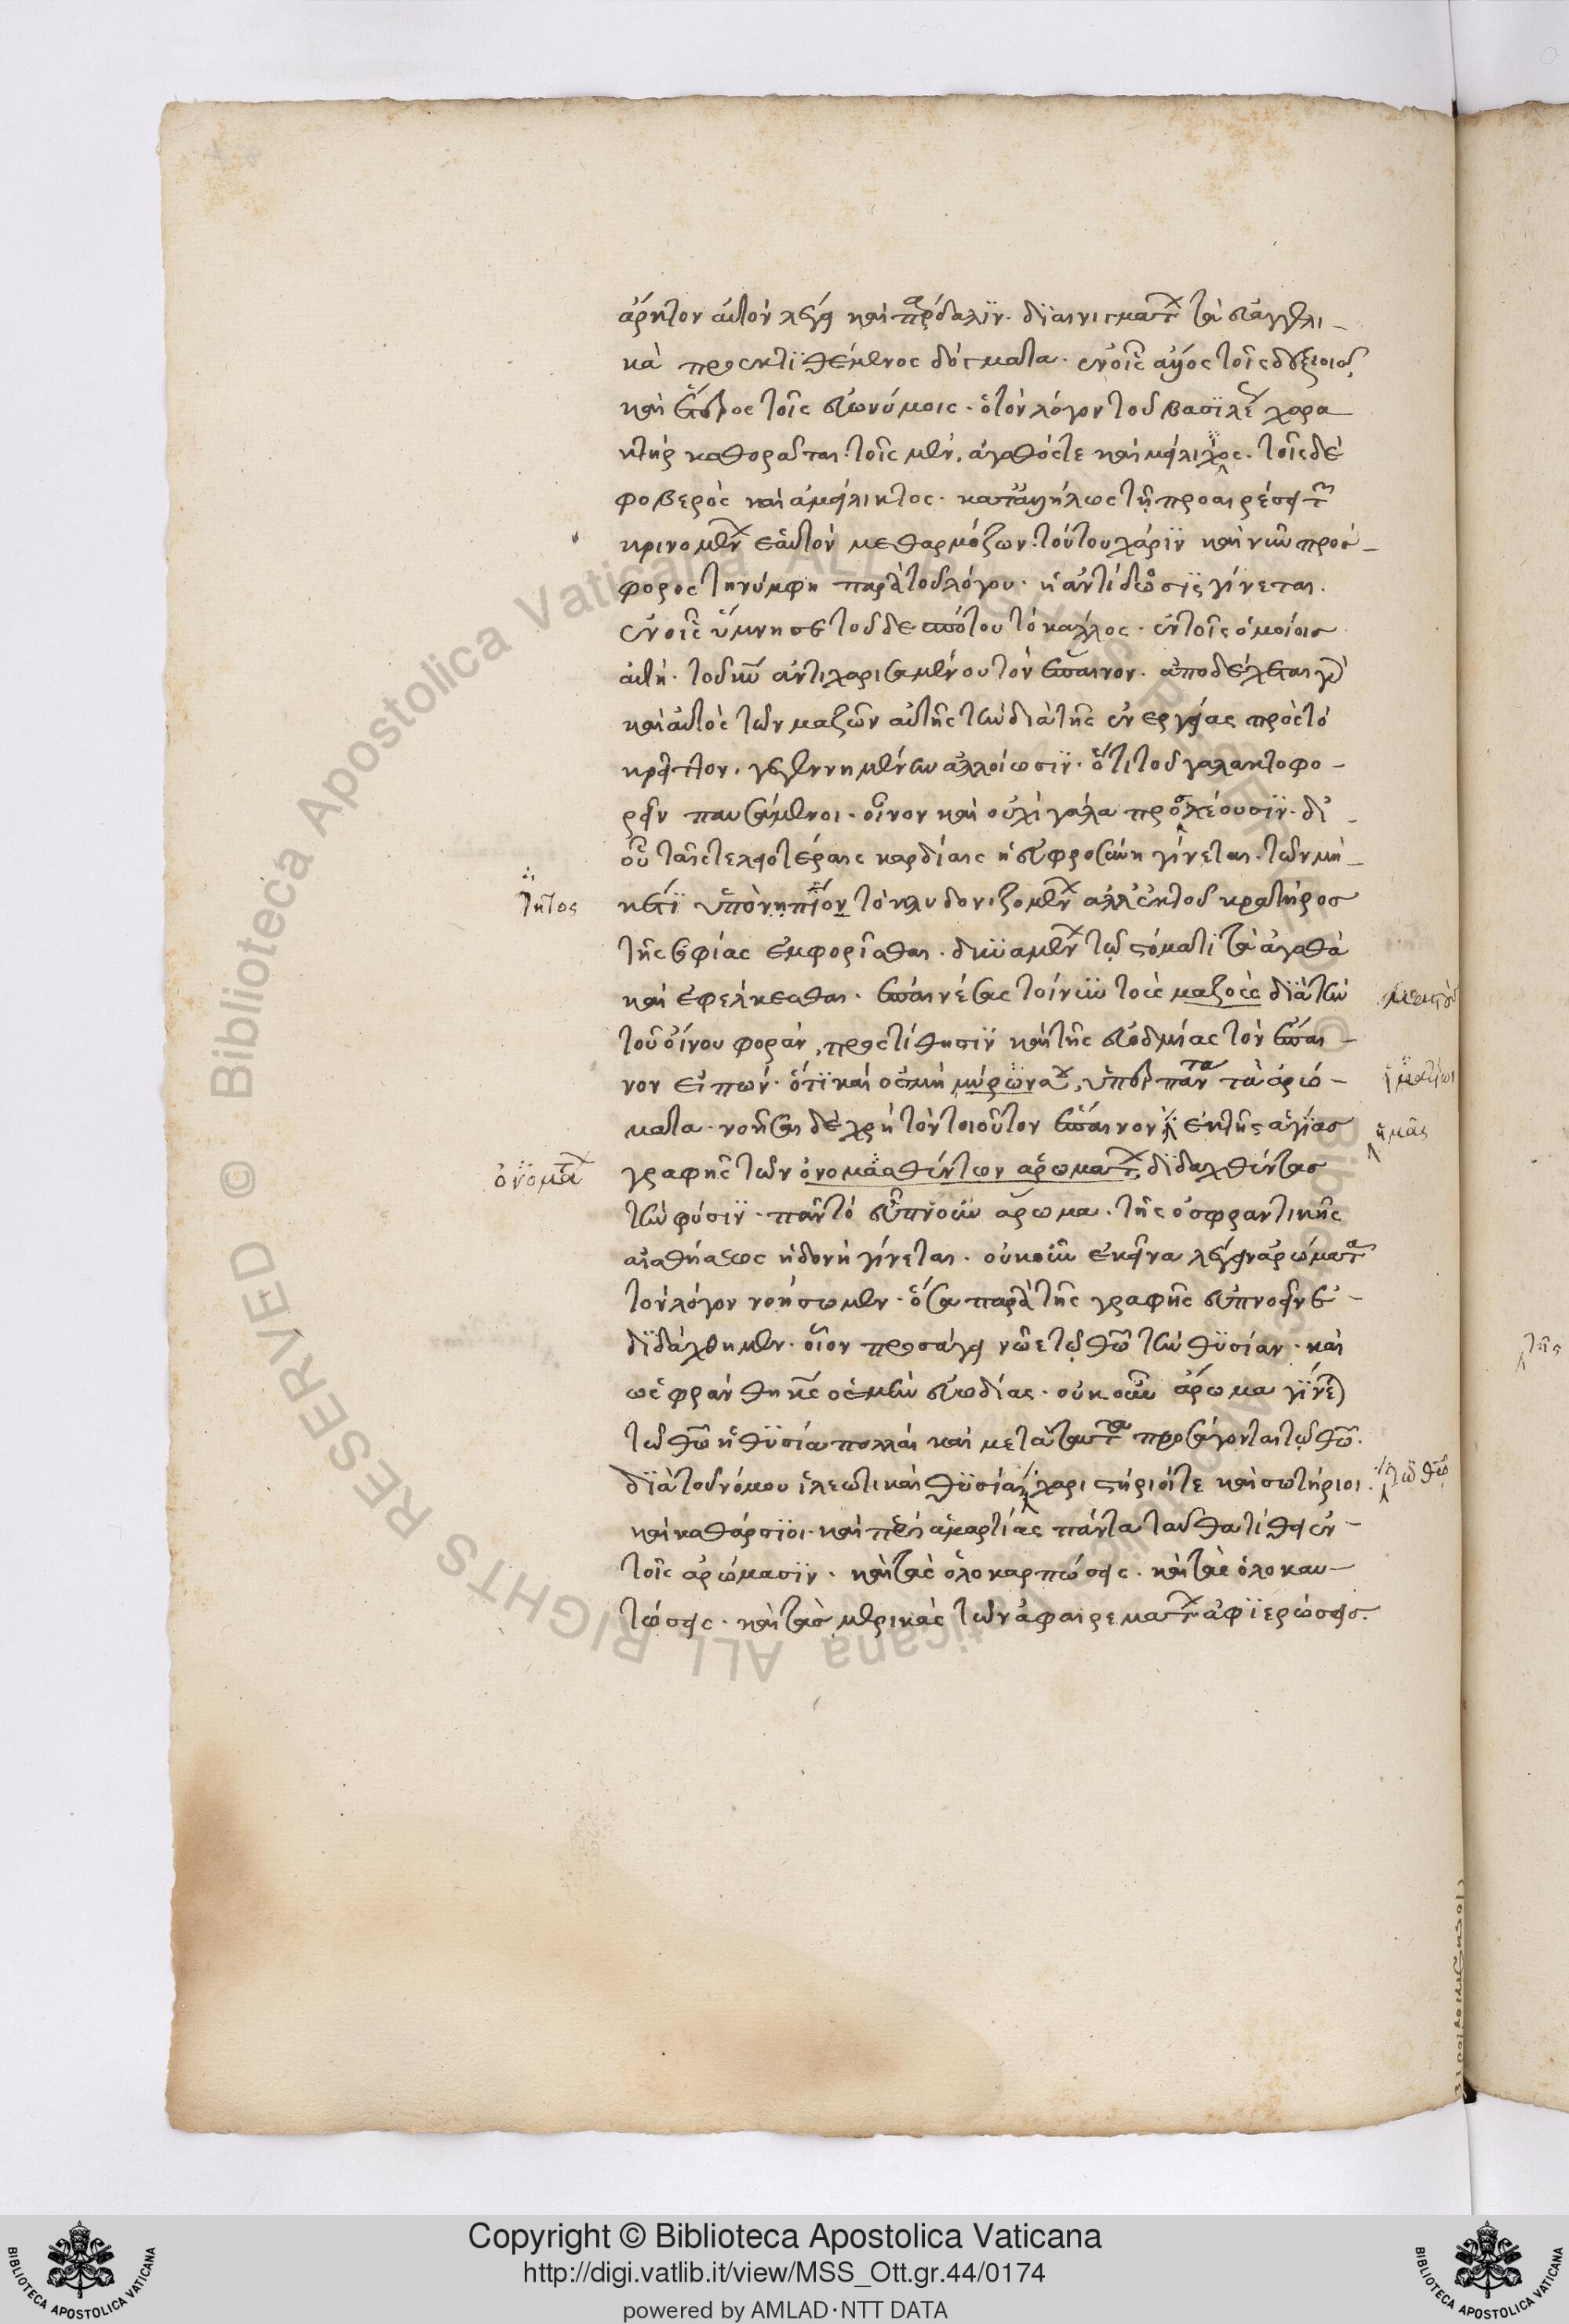 ἄρκτον αὐτὸν λέγει καὶ πάρδαλϊν. δϊ αἰνιγμάτων τὰ εὐαγγελι-
κὰ προεκτϊθέμενος δόγματα. ἐν οἷς ἄλλος τοῖς δεξιοῖς
καὶ ἕτερος τοῖς εὐωνύμοις. ὁ τὸν λόγον τοῦ βασϊλέως χαρα
κτὴρ καθορᾶται. τοῖς μὲν, ἀγαθός τε καὶ μείλιχος. τοῖς δὲ
φοβερὸς καὶ ἀμείλικτος. καταλλήλως τῇ προαιρέσει τῶν
κρινομένων ἑαυτὸν μεθαρμόζων. τούτου χάρϊν καὶ νῦν πρόσ-
φορος τῇ νύμφῃ παρὰ τοῦ λόγου. ἡ ἀντίδωσϊς γίνεται.
ἐν οἷς ὕμνησε τοῦ δεσπότου τὸ κάλλος. ἐν τοῖς ὁμοίοις
αὐτὴ. τοῦ νῦν ἀντιχαρισαμένου τὸν ἔπαινον. ἀποδέχεται γὰρ
καὶ αὐτὸς τῶν μαζῶν αὐτῆς τὴν διὰ τῆς ἐνεργείας πρὸς τὸ
κρεῖττον. γεγεννημένην ἀλλοίωσϊν. ὅτι τοῦ γαλακτοφο-
ρεῖν παυσάμενοι. οἶνον καὶ οὐχὶ γάλα προχέουσϊν. δι᾽
οὗ ταῖς τελειοτέραις καρδίαις ἡ εὐφροσύνη γίνεται. τῶν μη-
τητος
κέτϊ ὑπὸ νηπϊον τὸ κλυδονιζομένων ἀλλ᾽ ἐκ τοῦ κρατῆρος
τῆς σοφίας ἐμφορεῖσθαι. δυναμένων τῷ στόματϊ τὰ ἀγαθὰ
καὶ ἐφέλκεσθαι. ἐπαινέσας τοίνυν τοὺς μαζοὺς δϊὰ τὴν
τοῦ οἴνου φορὰν, προστίθησϊν καὶ τῆς εὐοδμίας τὸν ἔπαι-
νον εἰπὼν. ὅτϊ καὶ ὀσμὴ μύρων σου, ὑπὲρ πάντα τὰ ἀρώ-
ματα. νοῆσαι δὲ χρὴ τὸν τοιοῦτον ἔπαινον ἐκ τῆς ἁγίας
ἡμᾶς
γραφῆς τῶν ὀνομασθέντων ἀρωμάτων, δϊδαχθέντας
τὴν φύσϊν. πᾶν τὸ εὔπνουν ἄρωμα. τῆς ὀσφραντικῆς
αἰσθήσεως ἡδονὴ γίνεται. οὐκοῦν ἐκεῖνα λέγειν ἀρώματα
τὸν λόγον νοήσωμεν. ὅσα παρὰ τῆς γραφῆς εὐπνοεῖν ἐ-
δϊδάχθημεν. οἷον προσάγει νῶε τῷ θῶ τὴν θϋσίαν. καὶ
ὠσφράνθη κς ὀσμὴν εὐωδίας. οὐκοῦν ἄρωμα γίνεται
τῷ θῶ ἡ θϋσία πολλαὶ καὶ μετὰ ταῦτα προσάγονται τῷ θῶ.
δϊὰ τοῦ νόμου ἱλεωτικαὶ θϋσίαι, χαριστήριοί τε καὶ σωτήριοι.
τῷ θῶ
καὶ καθάρσϊοι. καὶ περὶ ἁμαρτίας πάντα ταῦθα τίθει ἐν-
τοῖς ἀρώμασϊν. καὶ τὰς ὁλοκαρπώσεις. καὶ τὰς ὁλοκαυ-
τώσεις. καὶ τὰς μερικὰς τῶν ἀφαιρεμάτων ἀφϊερώσεις.
τῆς
Copyright © Biblioteca Apostolica Vaticana
http://digi.vatlib.it/view/MSS_Ott.gr.44/0174
powered by AMLAD·NTT DATA
BIBLIOTECA APOSTOLICA VATICANA
BIBLIOTECA APOSTOLICA VATICANA